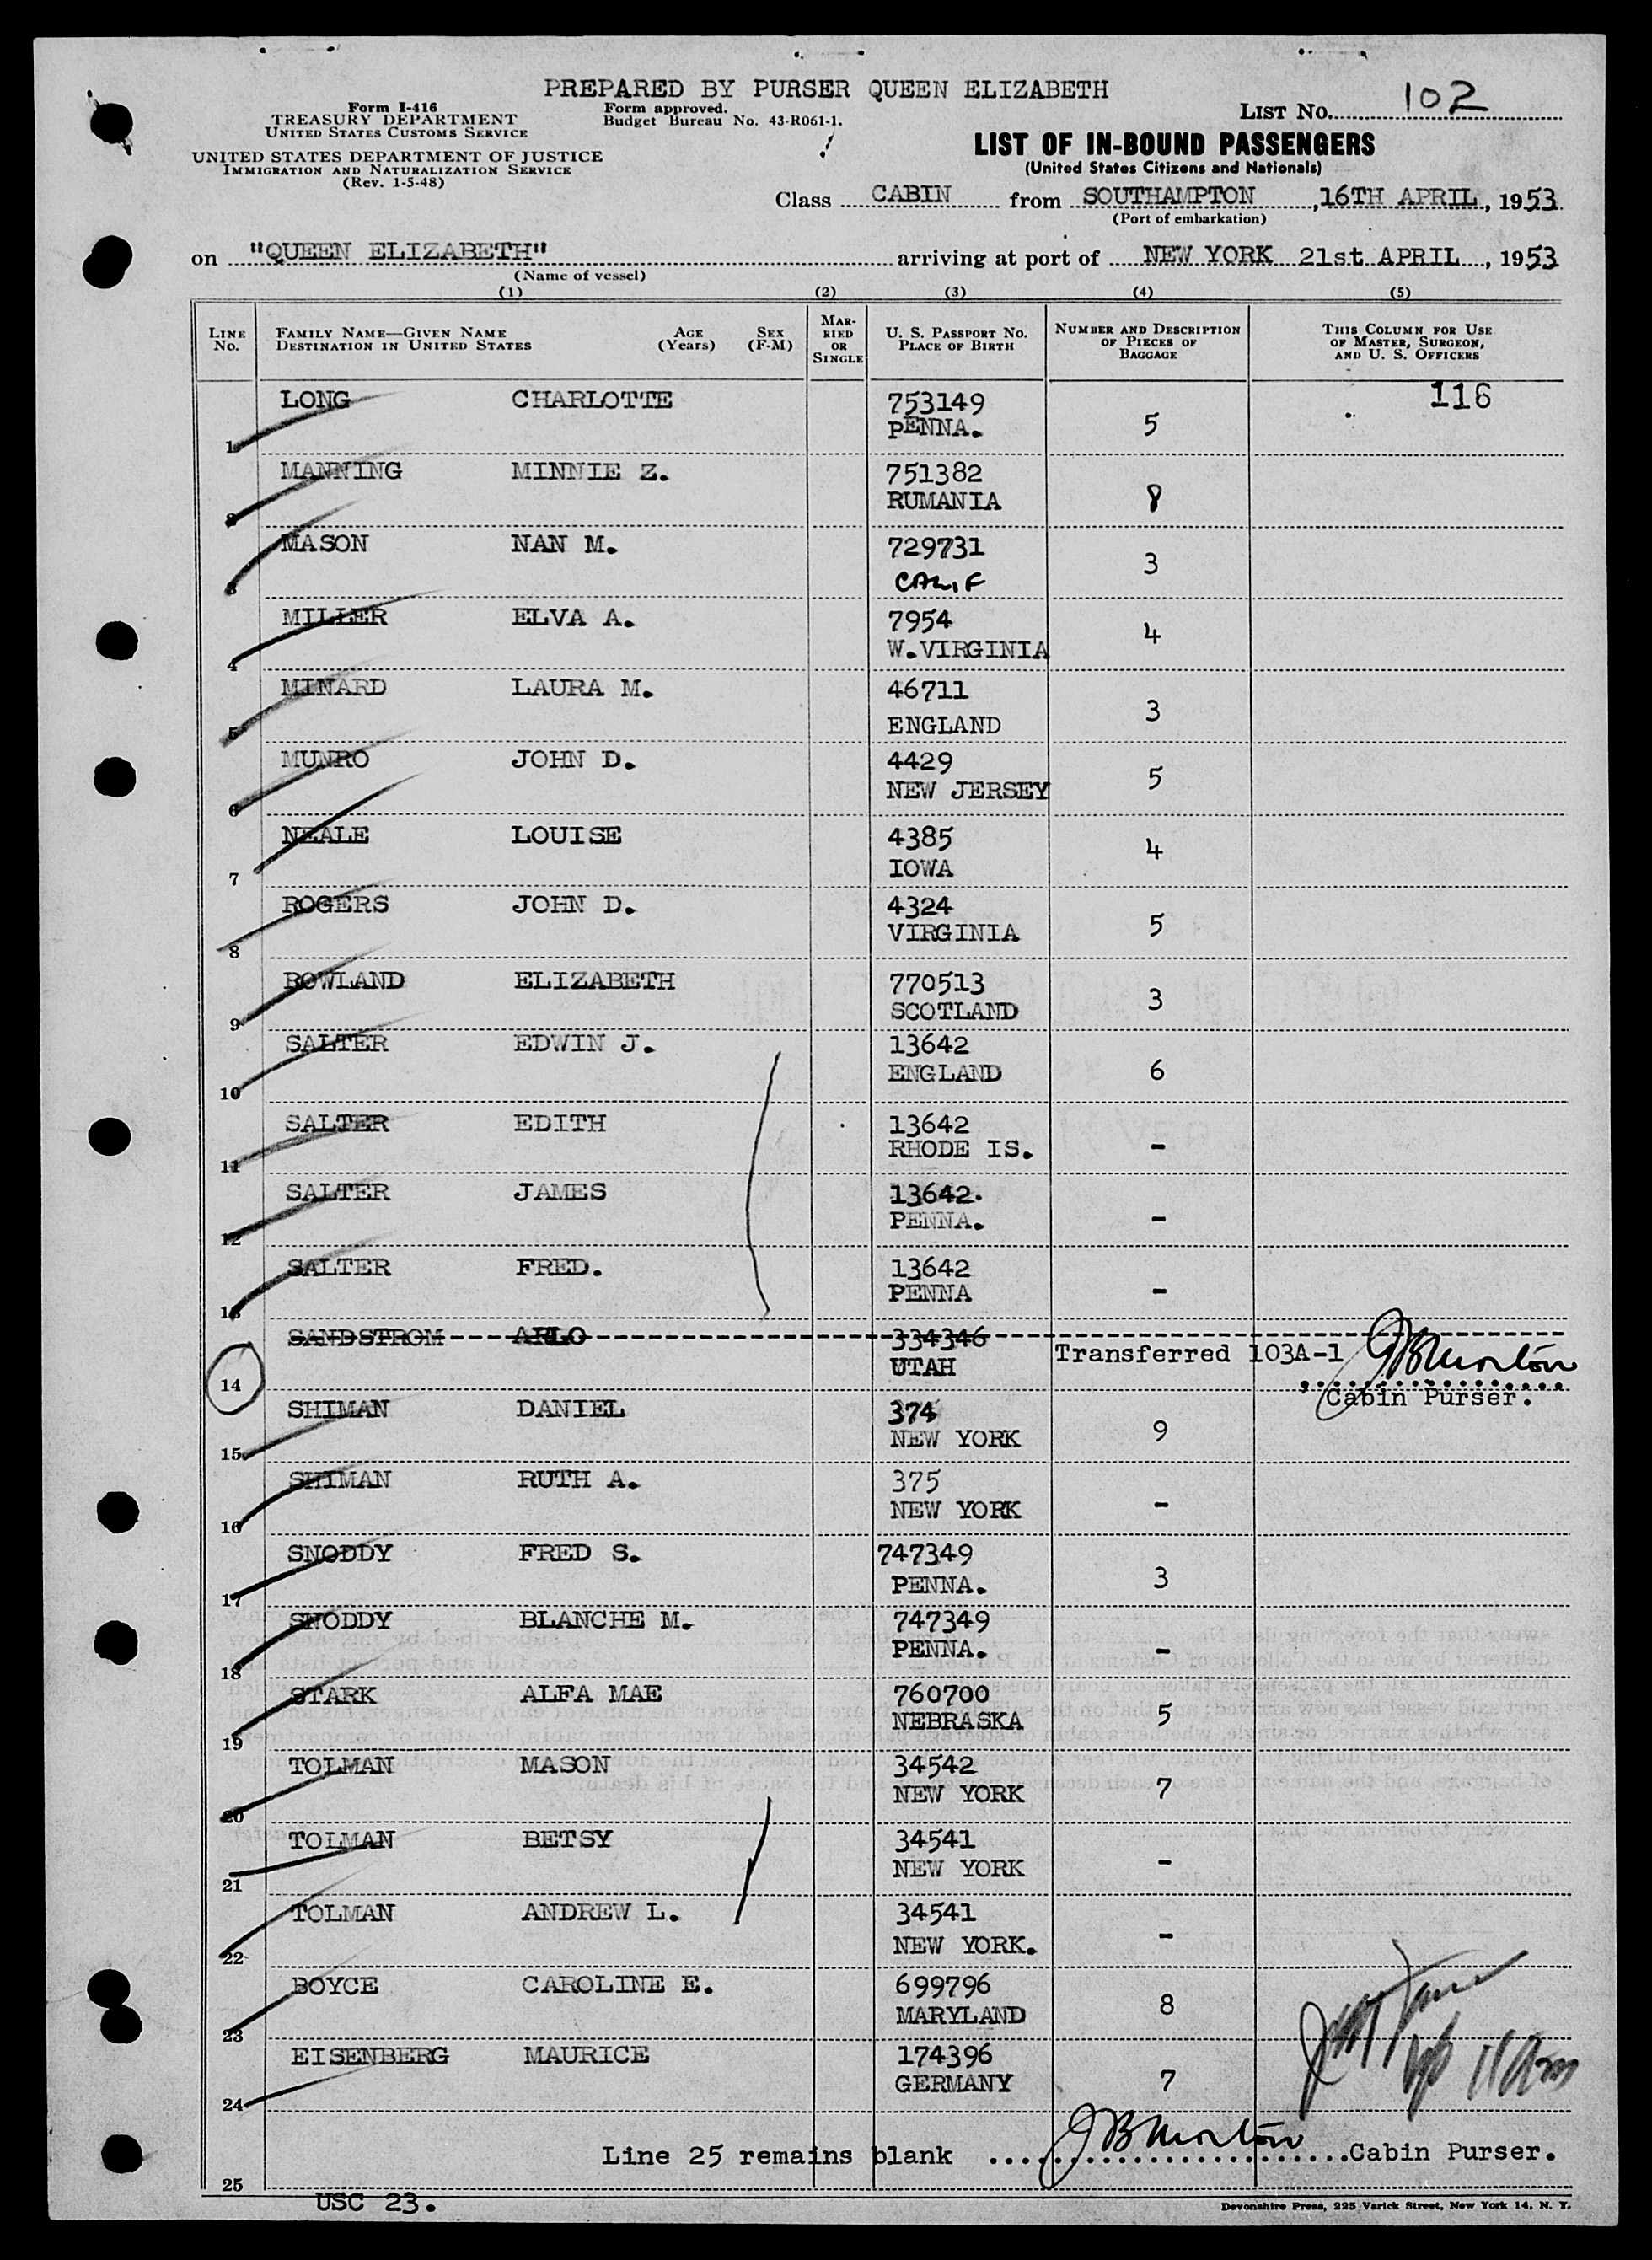 PREPARED BY PURSER QUEEN ELIZABETH
Form I-416
TREASURY DEPARTMENT
UNITED STATES CUSTOMS SERVICE
UNITED STATES DEPARTMENT OF JUSTICE
IMMIGRATION AND NATURALIZATION SERVICE
(Rev. 1-5-48)
Form approved.
Budget Bureau No. 43-R061-1.
LIST No. 102
LIST OF IN-BOUND PASSENGERS
(United States Citizens and Nationals)
Class CABIN from SOUTHAMPTON, 16TH APRIL, 1953
(Port of embarkation)
on "QUEEN ELIZABETH" arriving at port of NEW YORK 21st APRIL, 1953
(Name of vessel)
(1) (2) (3) (4) (5)
LINE No.
FAMILY NAME—GIVEN NAME
DESTINATION IN UNITED STATES
AGE (Years)
SEX (F-M)
MARRIED OR SINGLE
U. S. PASSPORT No.
PLACE OF BIRTH
NUMBER AND DESCRIPTION OF PIECES OF BAGGAGE
THIS COLUMN FOR USE OF MASTER, SURGEON, AND U. S. OFFICERS
116
1 LONG CHARLOTTE 753149
PENNA. 5
2 MANNING MINNIE Z. 751382
RUMANIA 8
3 MASON NAN M. 729731
CALIF 3
4 MILLER ELVA A. 7954
W.VIRGINIA 4
5 MINARD LAURA M. 46711
ENGLAND 3
6 MUNRO JOHN D. 4429
NEW JERSEY 5
7 NEALE LOUISE 4385
IOWA 4
8 ROGERS JOHN D. 4324
VIRGINIA 5
9 ROWLAND ELIZABETH 770513
SCOTLAND 3
10 SALTER EDWIN J. 13642
ENGLAND 6
11 SALTER EDITH 13642
RHODE IS. -
12 SALTER JAMES 13642.
PENNA. -
13 SALTER FRED. 13642
PENNA -
14 SANDSTROM ARLO 334346
UTAH Transferred 103A-1 JB Morton
Cabin Purser.
15 SHIMAN DANIEL 374
NEW YORK 9
16 SHIMAN RUTH A. 375
NEW YORK -
17 SNODDY FRED S. 747349
PENNA. 3
18 SNODDY BLANCHE M. 747349
PENNA. -
19 STARK ALFA MAE 760700
NEBRASKA 5
20 TOLMAN MASON 34542
NEW YORK 7
21 TOLMAN BETSY 34541
NEW YORK -
22 TOLMAN ANDREW L. 34541
NEW YORK. -
23 BOYCE CAROLINE E. 699796
MARYLAND 8
24 EISENBERG MAURICE 174396
GERMANY 7
25 Line 25 remains blank JB Morton Cabin Purser.
USC 23.
Devonshire Press, 225 Varick Street, New York 14, N. Y.